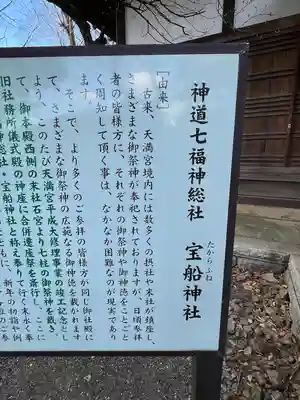 神道七福神総社　宝船神社
たからふね
［由来］
古来、天満宮境内には数多くの摂社や末社が鎮座し、
さまざまな御祭神が奉祀されておりますが、日頃参拝
者の皆様方に、それぞれの御祭神や御神徳をことごと
く周知して頂く事は、なかなか困難なのが現実であり
ます。
そこで、より多くのご参拝の皆様方が同じ御社殿に
て、さまざまな御祭神の広範なる御神徳を戴かれます
よう、このたび天満宮平成大修理事業の竣工記念とし
て、御本殿西側の末社石宮より七社の御祭神を戴き、
旧社務所儀式殿の神座に合併遷座祭を斎行し、ここに
神総社・宝船神社と称え奉りて末永く奉
新年の初詣や例